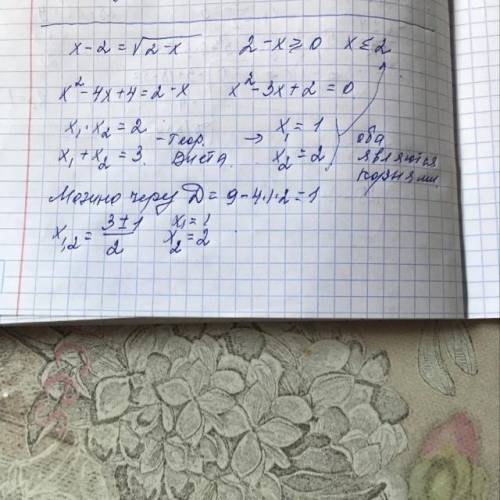 x-2 = √2-x   2-x ≥ 0   x ≤ 2
x²-4x+4 = 2-x   x²-3x+2 = 0
x₁·x₂ = 2   x₁ = 1   оба
x₁+x₂ = 3   - теор. Виета → x₂ = 2   являются корнями.
Можно через D = 9-4·1·2 = 1
x₁,₂ = (3±1)/2   x₁ = 1
x₂ = 2